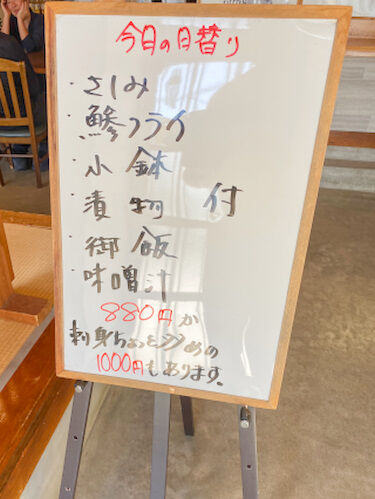 今日の日替り
・さしみ
・鯵フライ
・小鉢
・漬物 付
・御飯
・味噌汁
880円か
刺身ちょっと多めの
1000円もあります。